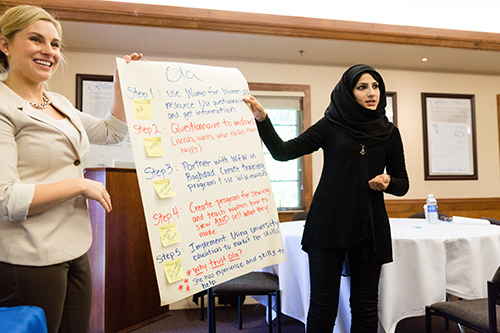 Ola
Step 1: Use Women for Women
resource (use questionnaire)
and get information.
Step 2:
Questionnaire to widows
(needs, wants, what makes them
happy)
Step 3: Partner with WfW in
Baghdad. Create training
program (use WfW resources)
Step 4
Create program for sewing
and teach women how to
sew AND sell what they
make.
Step 5:
Implement. Using university
education to market her skills
* Why trust Ola?
* She has experience and skills to
help